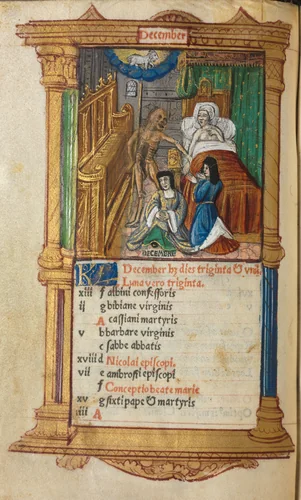 December
DECEMBRE
KL December hz dies triginta & unū
Luna vero triginta.
xiii f albini confessoris
ij g bibiane virginis
A cassiani martyris
v b barbare virginis
c sabbe abbatis
xviii d Nicolai episcopi.
vii e ambrosii episcopi
f Conceptio beate marie
xv g sixti pape & martyris
iiii A